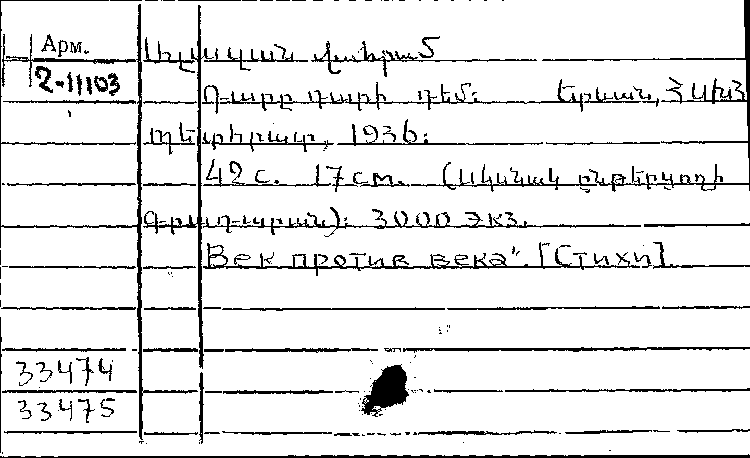 Арм.
2-11103
Ալազան Վահրամ
Դարը դարի դեմ: Երևան, ՀՍԽՀ
պետհրատ, 1936:
42 с. 17 см. (Սկսնակ ընթերցողի
գրադարան): 3000 экз.
Век против века". [Стихи]
33474
33475